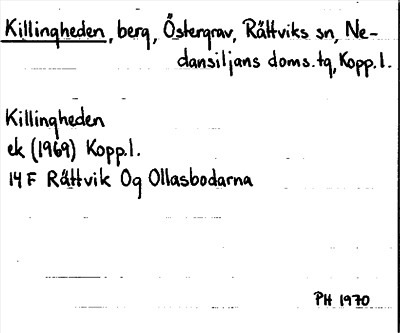 Killingheden, berg, Östergrav, Rättviks sn, Ne-
dansiljans doms.tg, Kopp.l.
Killingheden
ek (1969) Kopp.l.
14 F Rättvik Og Ollasbodarna
PH 1970